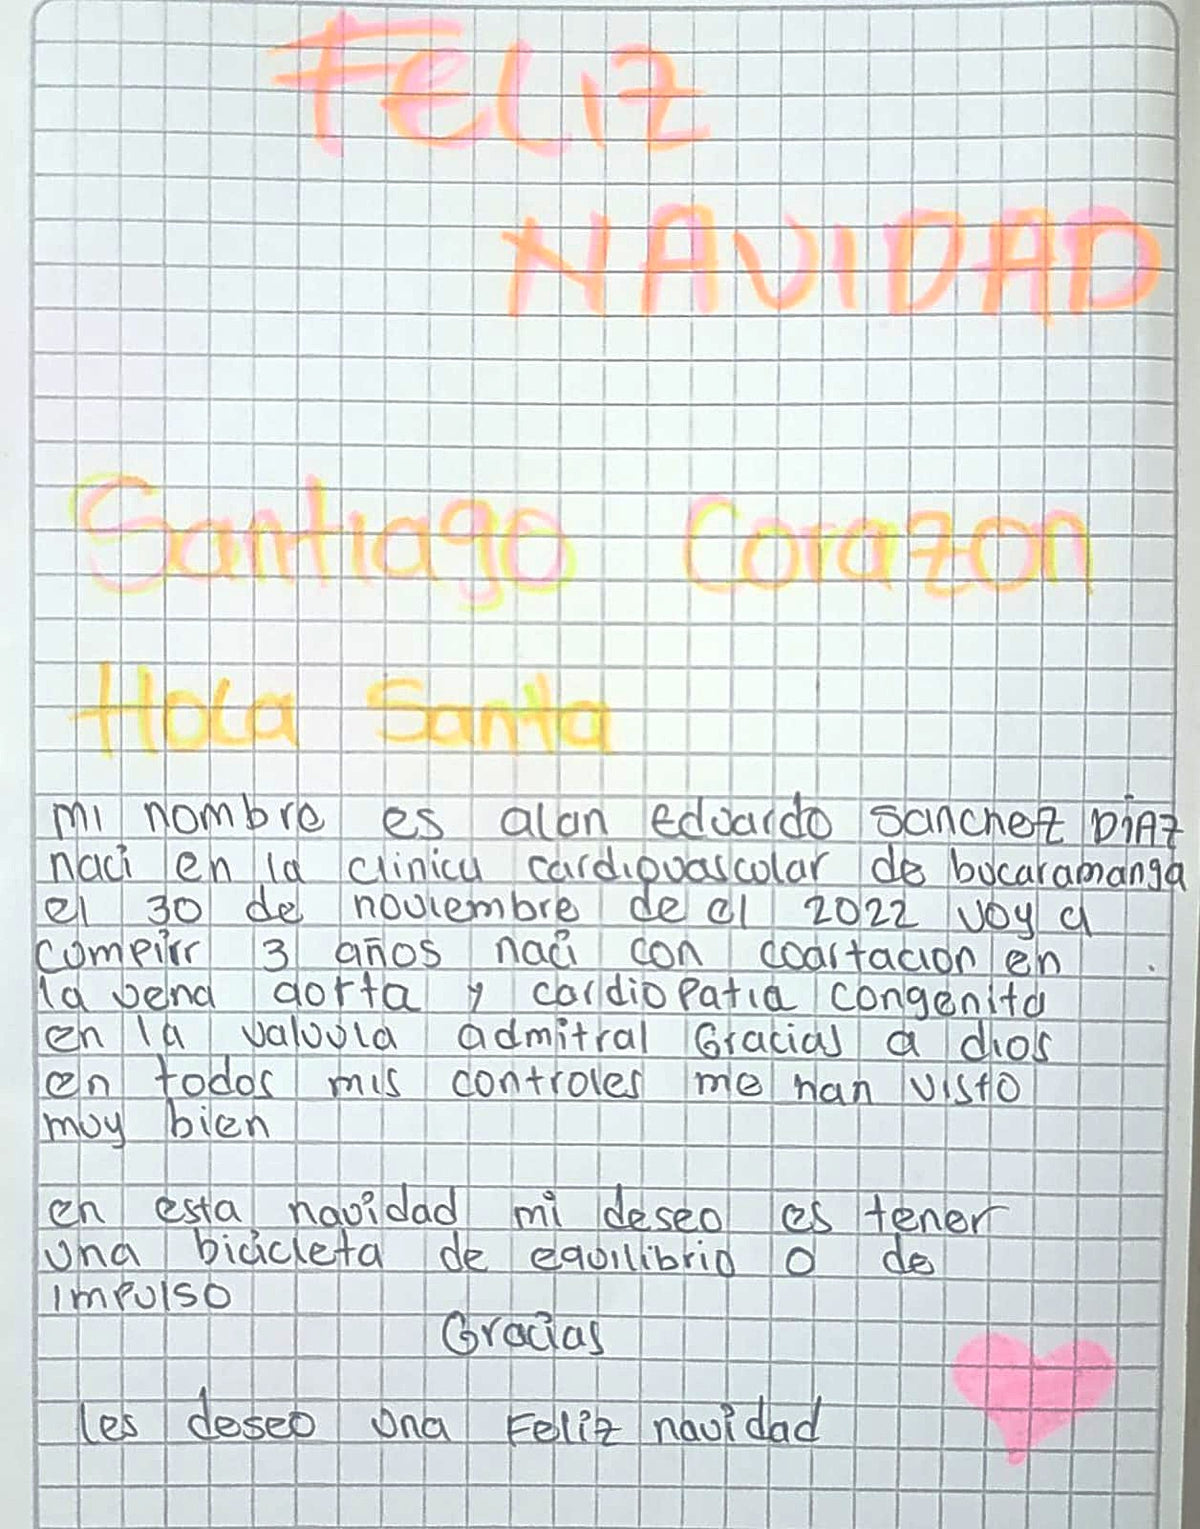 FELIZ
NAVIDAD
Santiago Corazon
Hola Santa
mi nombre es alan eduardo sanchez DiAz
naci en la clinica cardiovascular de bucaramanga
el 30 de noviembre de el 2022 voy a
cumplir 3 años naci con coartacion en
la vena aorta y cardiopatia congenita
en la valvula admitral Gracias a dios
en todos mis controles me han visto
muy bien
en esta navidad mi deseo es tener
una bicicleta de equilibrio o de
impulso
Gracias
les deseo una Feliz navidad